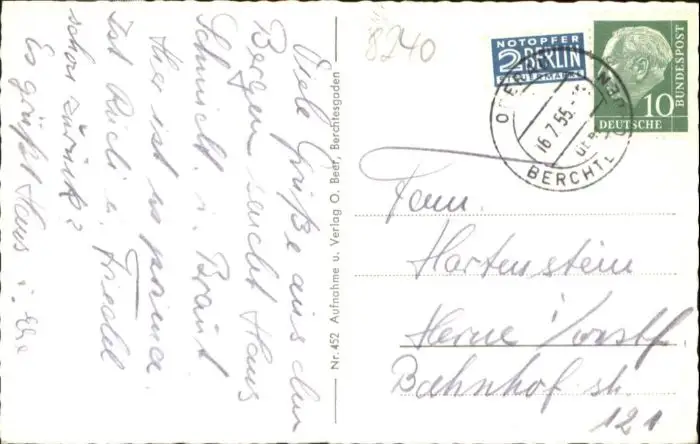 Viele Grüße aus den
Bergen sendet Hans
Schmidt u. Braut
Hier ist es prima.
Ist Rudi u. Friedel
schon zurück?
Es grüßt Hans u.
Nr. 452 Aufnahme u. Verlag O. Beer, Berchtesgaden
8240
NOTOPFER
2 BERLIN
STEUERMARKE
DEUTSCHE
BUNDESPOST
10
16.7.55.
BERCHT
Fam.
Hartenstein
Herne i/Westf.
Bahnhofstr.
121